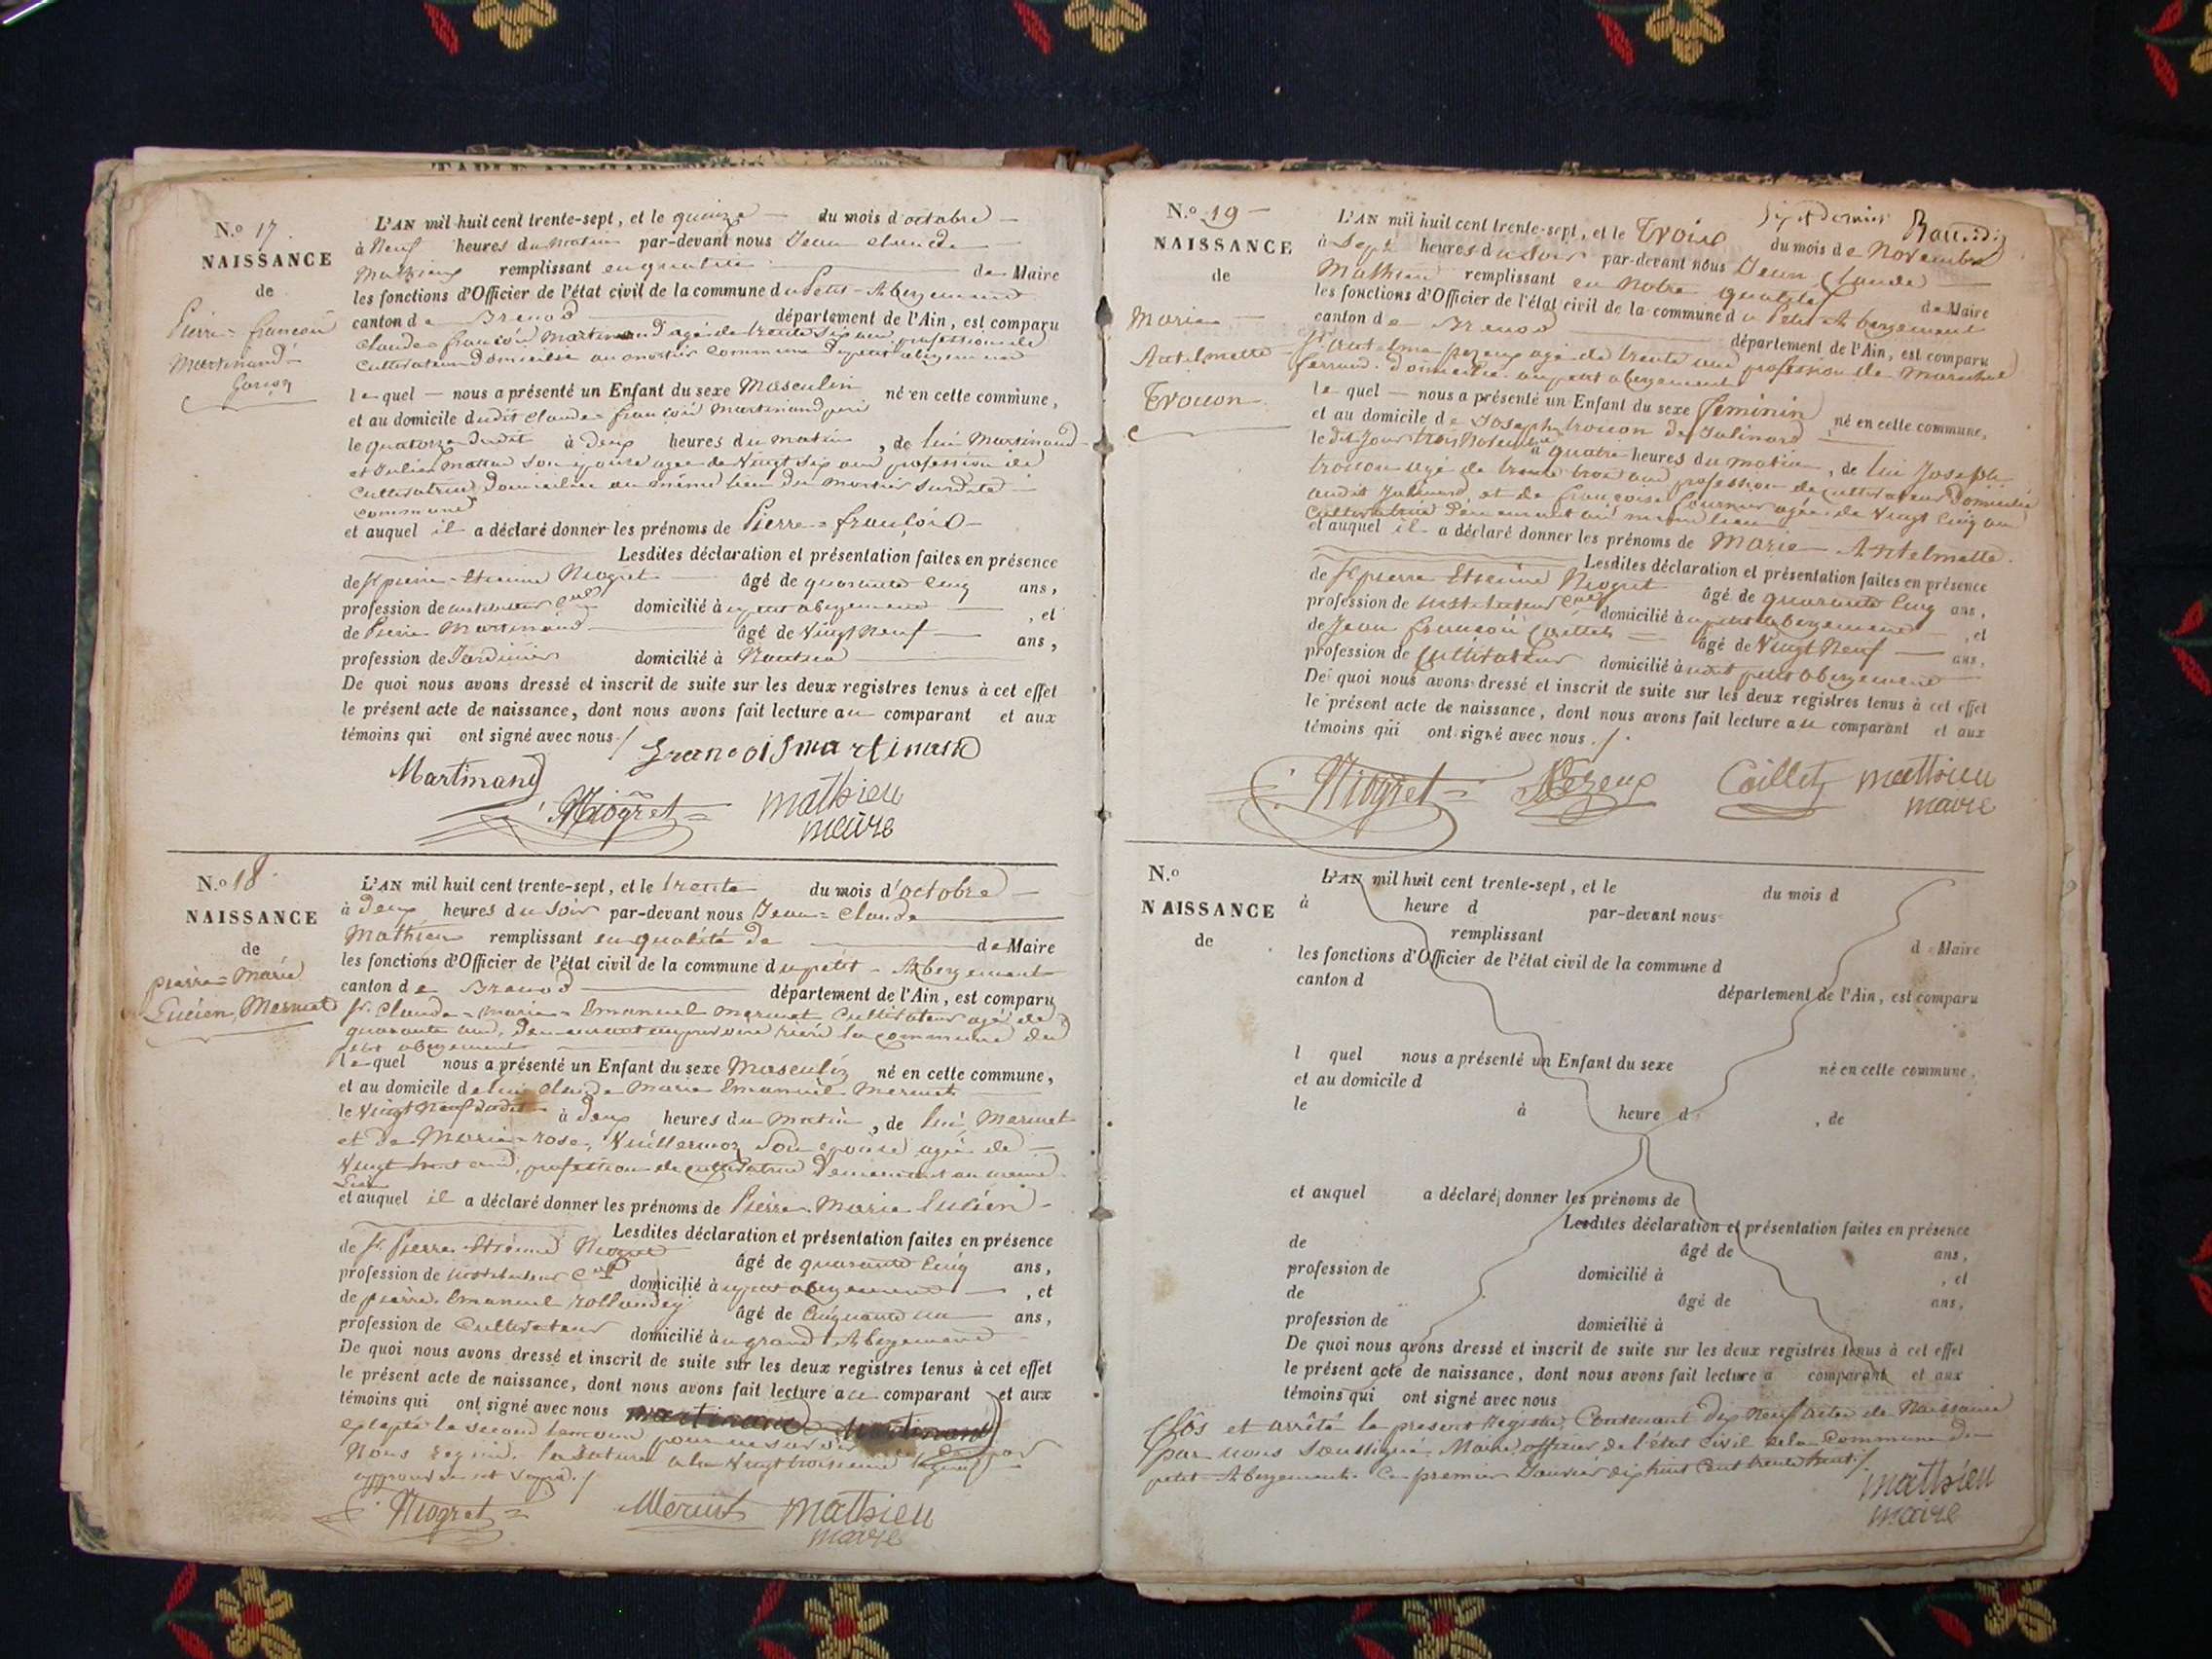 N.o 17
NAISSANCE
de
Pierre = françois
Martinand
Garçon
L'AN mil huit cent trente-sept, et le quinze du mois d'octobre
à Neuf heures du matin par-devant nous Jean Claude
Mathieu remplissant en qualité de Maire
les fonctions d'Officier de l'état civil de la commune du Petit-Abergement
canton de Brenod département de l'Ain, est comparu
Claude françois Martinand agé de trente six ans profession de
Cultivateur Domicilié au mortier Commune du petit abergement
le quel nous a présenté un Enfant du sexe Masculin né en cette commune,
et au domicile dudit Claude françois Martinand père
le quatorze dudit à Deux heures du matin, de lui Martinand
et Julie Son épouse agée de Vingt Six ans profession de
Cultivatrice Domiciliée au même lieu du mortier Susdite
commune
et auquel il a déclaré donner les prénoms de Pierre = françois
Lesdites déclaration et présentation faites en présence
de Sr pierre Etienne Niogret âgé de quarante Cinq ans,
profession de instituteur domicilié à petit abergement, et
de Pierre Martinand âgé de Vingt Neuf ans,
profession de Jardinier domicilié à Nantua
De quoi nous avons dressé et inscrit de suite sur les deux registres tenus à cet effet
le présent acte de naissance, dont nous avons fait lecture au comparant et aux
témoins qui ont signé avec nous./ francois martinand
Martinand
Niogret mathieu
maire
N.o 18
NAISSANCE
de
pierre = Marie
Lucien Mermet
L'AN mil huit cent trente-sept, et le trente du mois d'octobre
à Deux heures du Soir par-devant nous Jean = Claude
Mathieu remplissant en qualité de de Maire
les fonctions d'Officier de l'état civil de la commune du petit - Abergement
canton de Brenod département de l'Ain, est comparu
Sr. Claude = marie = Emanuel mermet Cultivateur agé de
quarante ans, Demeurant la Commune du
petit abergement
le quel nous a présenté un Enfant du sexe Masculin né en cette commune,
et au domicile de lui Claude Marie Emanuel Mermet
le Vingt Neuf dudit à deux heures du Matin, de lui Mermet
et de Marie = rose, Vuillermoz Son épouse agée de
Vingt huit ans, profession de cultivatrice Demeurant au même
Lieu
et auquel il a déclaré donner les prénoms de Pierre Marie Lucien
Lesdites déclaration et présentation faites en présence
de Sr. Pierre Etienne Niogret âgé de quarante Cinq ans,
profession de instituteur domicilié à petit abergement, et
de pierre Emanuel âgé de Cinquante un ans,
profession de Cultivateur domicilié au grand Abergement
De quoi nous avons dressé et inscrit de suite sur les deux registres tenus à cet effet
le présent acte de naissance, dont nous avons fait lecture au comparant et aux
témoins qui ont signé avec nous
excepté le second temoin pour ne savoir
Nous
approuvé
Niogret Mermet mathieu
maire
N.o 19
NAISSANCE
de
Marie
Antelmette
Trocon
L'AN mil huit cent trente-sept, et le Trois du mois de Novembre
à Sept heures du Soir par-devant nous Jean Claude
Mathieu remplissant en Notre qualité de Maire
les fonctions d'Officier de l'état civil de la commune du Petit Abergement
canton de Brenod département de l'Ain, est comparu
Sr. Antelme agé de trente ans profession de Marechal
ferrand. Domicilié au petit abergement
le quel nous a présenté un Enfant du sexe feminin né en cette commune,
et au domicile de Joseph trocon de Julinard
le dit Jour trois Novembre à quatre heures du matin, de lui Joseph
trocon agé de trente trois ans profession de cultivateur Domicilié
audit Julinard, et de françoise fournier agée de Vingt Cinq ans
Cultivatrice Demeurant au même lieu
et auquel il a déclaré donner les prénoms de Marie Antelmette.
Lesdites déclaration et présentation faites en présence
de Sr pierre Etienne Niogret âgé de quarante Cinq ans,
profession de instituteur domicilié à petit abergement, et
de Jean françois Caillet âgé de Vingt Neuf ans,
profession de Cultivateur domicilié à petit abergement
De quoi nous avons dressé et inscrit de suite sur les deux registres tenus à cet effet
le présent acte de naissance, dont nous avons fait lecture au comparant et aux
témoins qui ont signé avec nous./.
Niogret Caillet mathieu
maire
N.o
NAISSANCE
de
L'AN mil huit cent trente-sept, et le du mois d
à heure d par-devant nous
remplissant d Maire
les fonctions d'Officier de l'état civil de la commune d
canton d département de l'Ain, est comparu
l quel nous a présenté un Enfant du sexe né en cette commune,
et au domicile d
le à heure d , de
et auquel a déclaré donner les prénoms de
Lesdites déclaration et présentation faites en présence
de âgé de ans,
profession de domicilié à , et
de âgé de ans,
profession de domicilié à
De quoi nous avons dressé et inscrit de suite sur les deux registres tenus à cet effet
le présent acte de naissance, dont nous avons fait lecture a comparant et aux
témoins qui ont signé avec nous
Clos et arrêté le present Registre Contenant Dix Neuf actes de Naissance
par nous Soussigné Maire officier de l'état Civil de la Commune du
petit Abergement. Ce premier Janvier dix huit Cent trente huit./
mathieu
maire